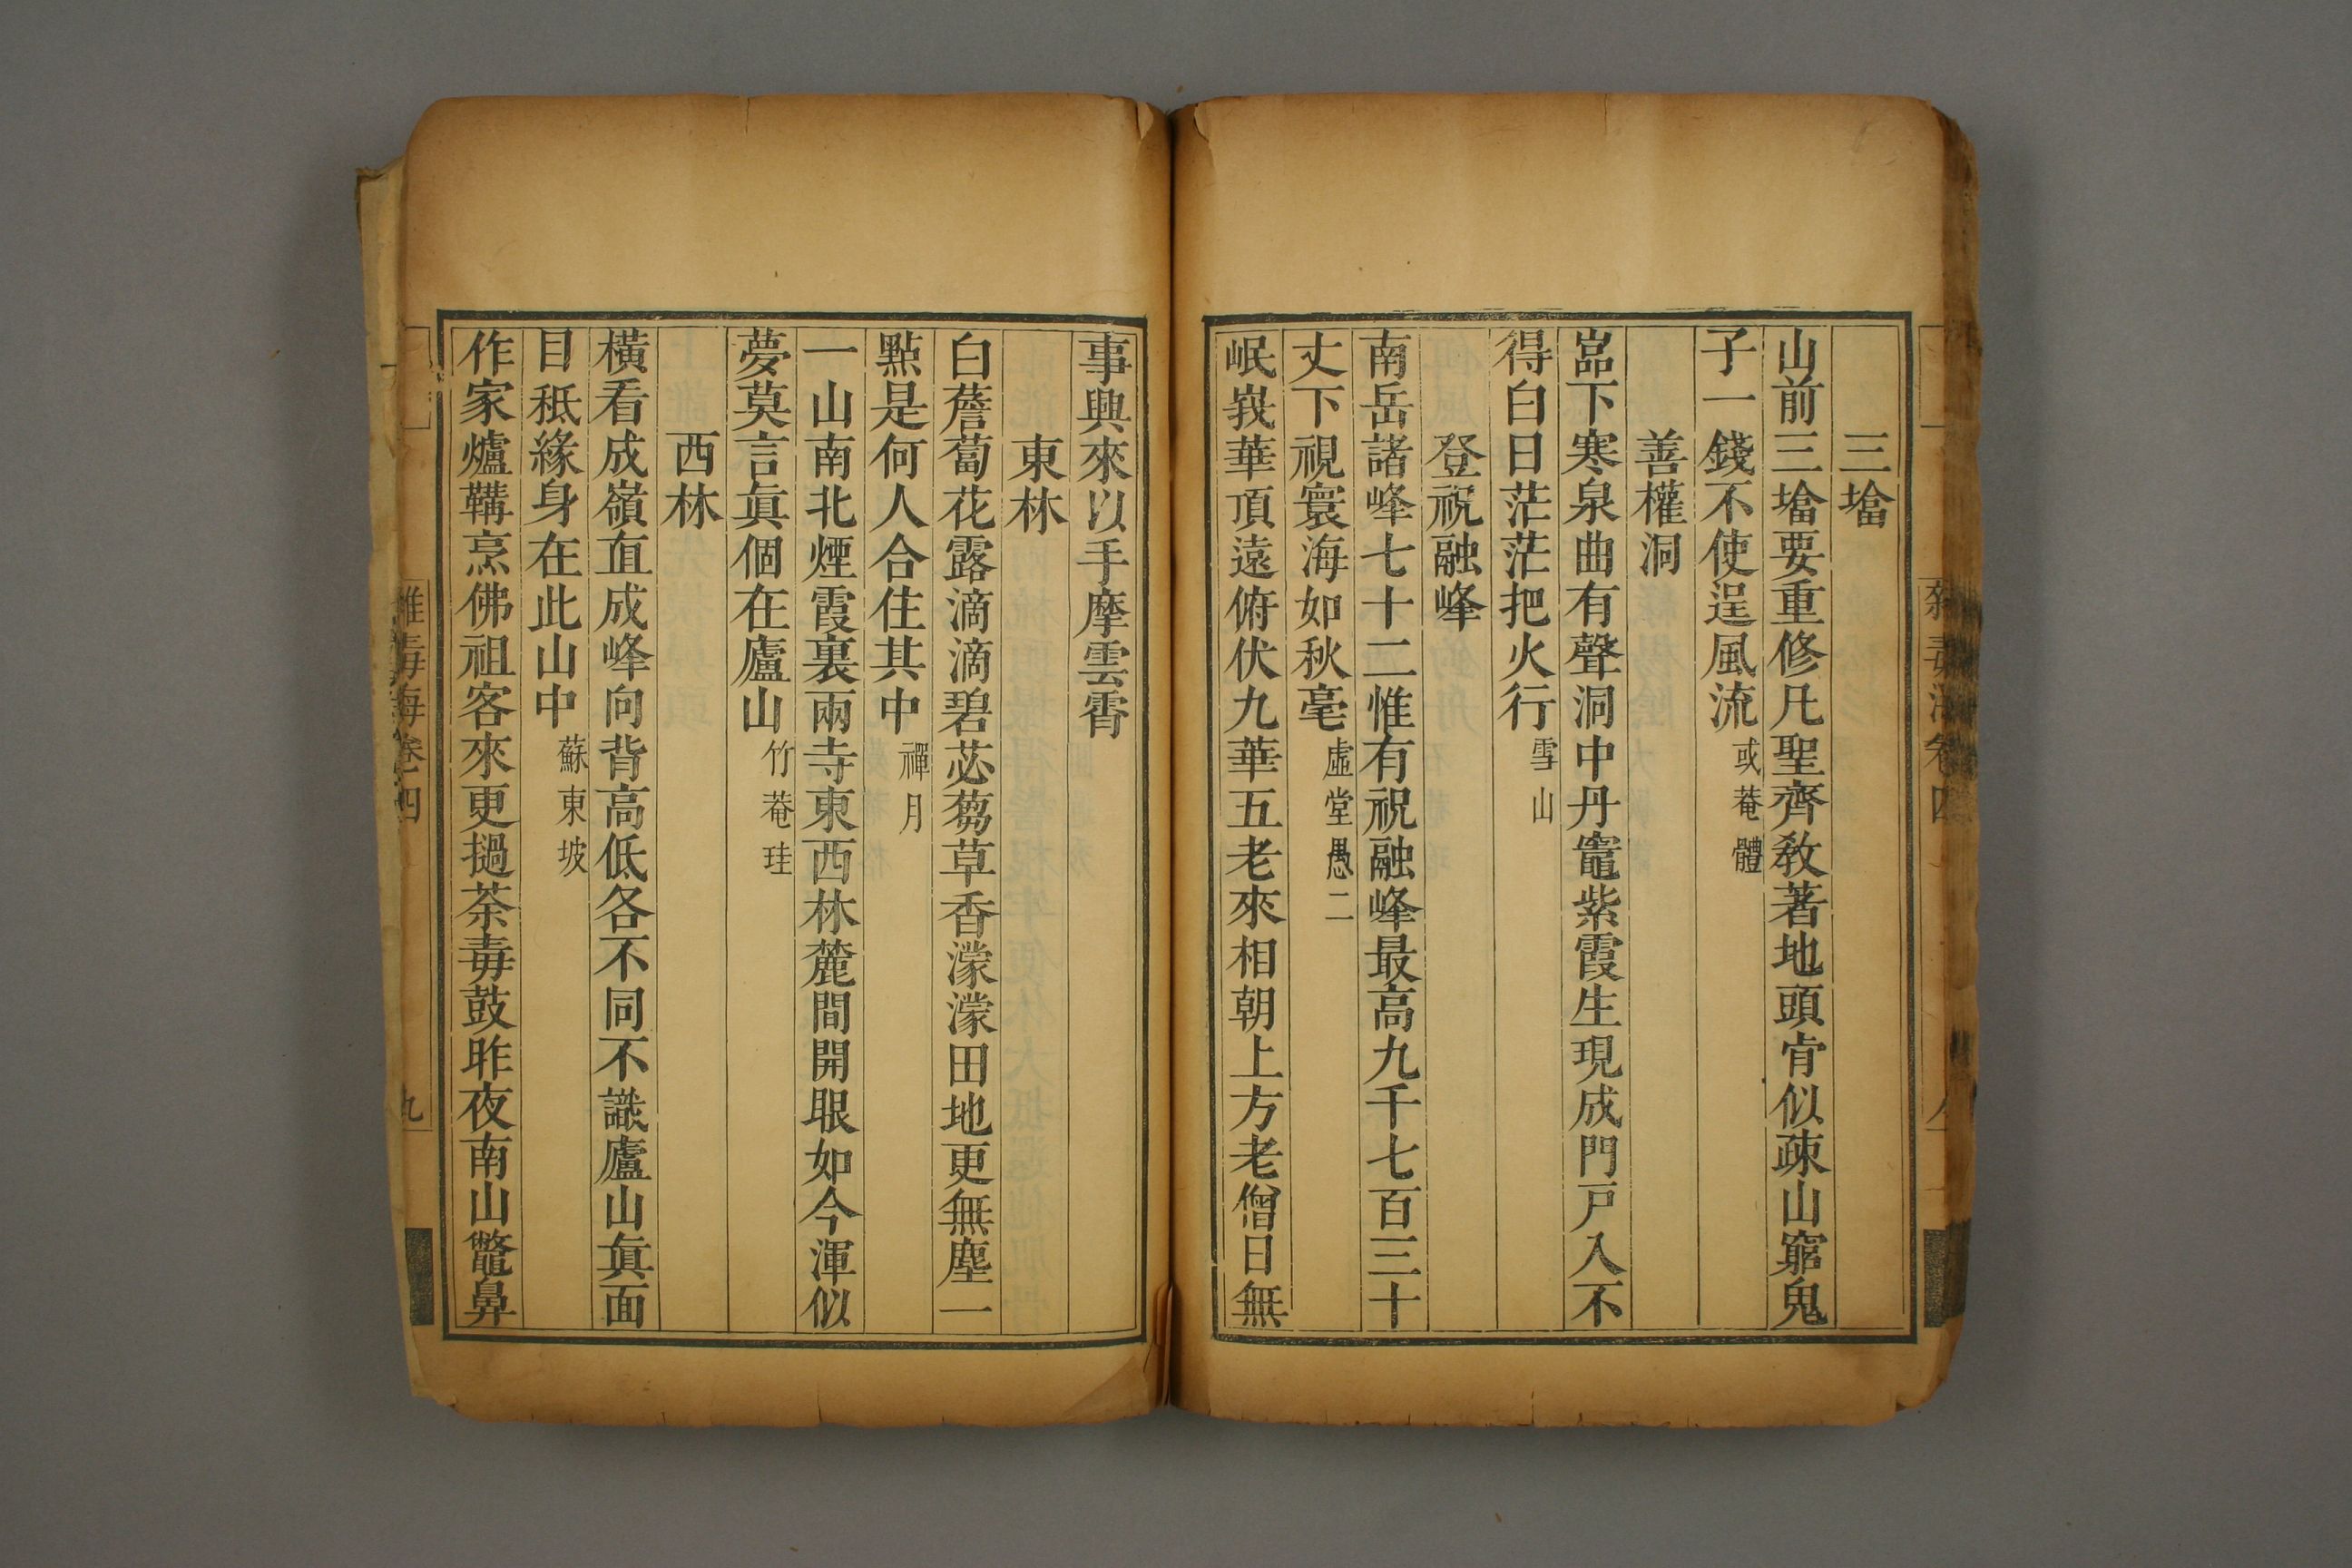 三墖
山前三墖要重修凡聖齊教著地頭肯似疎山窮鬼
子一錢不使逞風流 或菴體
善權洞
嵓下寒泉曲有聲洞中丹竈紫霞生現成門戸入不
得白日茫茫把火行 雪山
登祝融峰
南岳諸峰七十二惟有祝融峰最高九千七百三十
丈下視寰海如秋毫 虛堂愚二
岷峩華頂遠俯伏九華五老來相朝上方老僧日無
事興來以手摩雲霄
東林
白薝蔔花露滴滴碧苾蒭草香濛濛田地更無塵一
點是何人合住其中 禪月
一山南北煙霞裏兩寺東西林麓間開眼如今渾似
夢莫言眞個在廬山 竹菴珪
西林
橫看成嶺直成峰向背高低各不同不識廬山眞面
目秪緣身在此山中 蘇東坡
作家爐鞲烹佛祖客來更撾荼毒鼓昨夜南山鼈鼻
雜毒海卷四
九